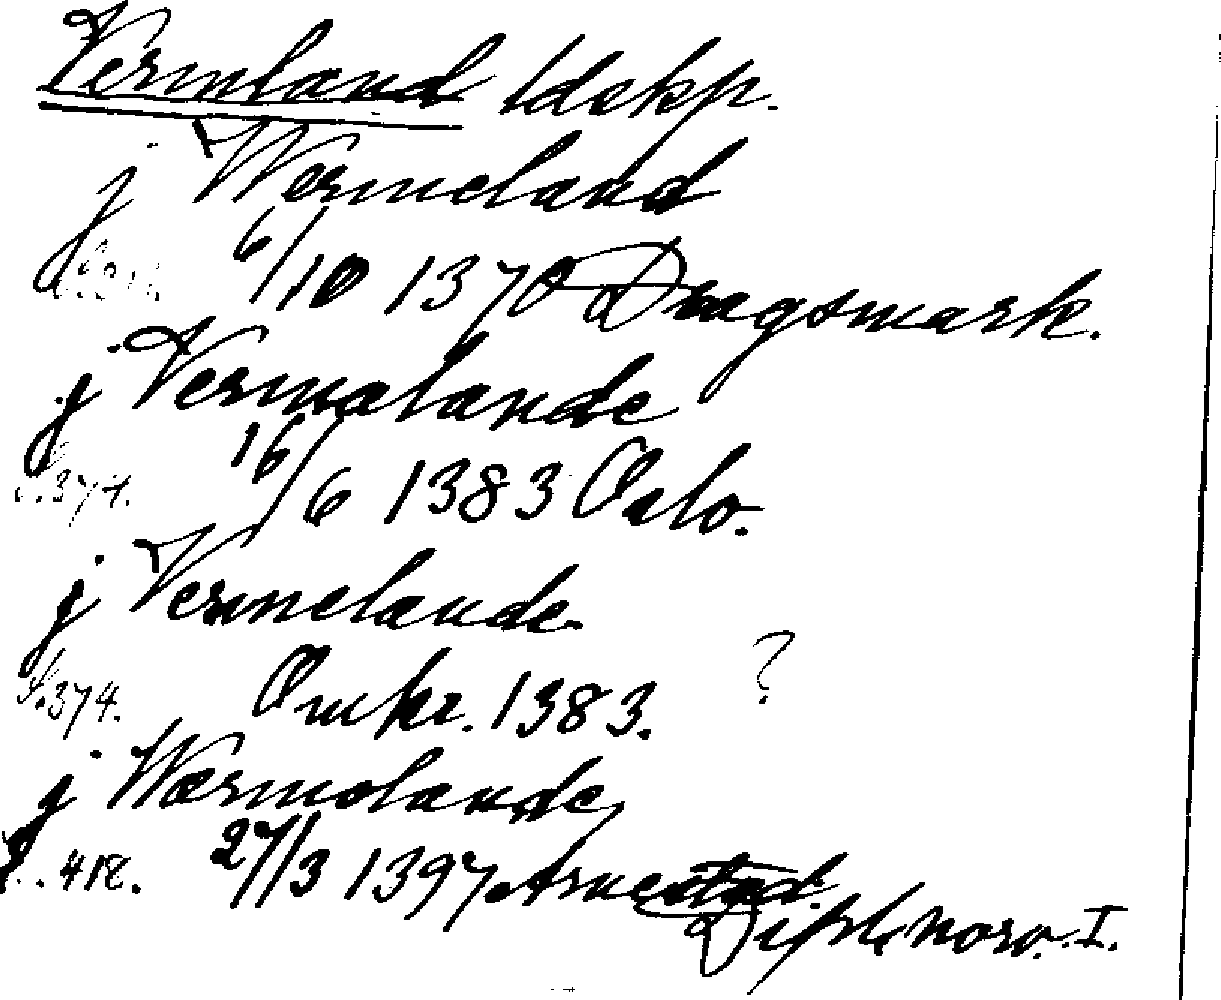 Vermland ldskp.
j Wermeland
6/10 1370 Dragsmark.
j Vermalande
S.374. 16/6 1383 Oslo.
j Vermelande
S.374. Omkr. 1383. ?
j Wærmolande,
S. 412. 27/3 1397 Arnestad.
Dipl. Norv. I.